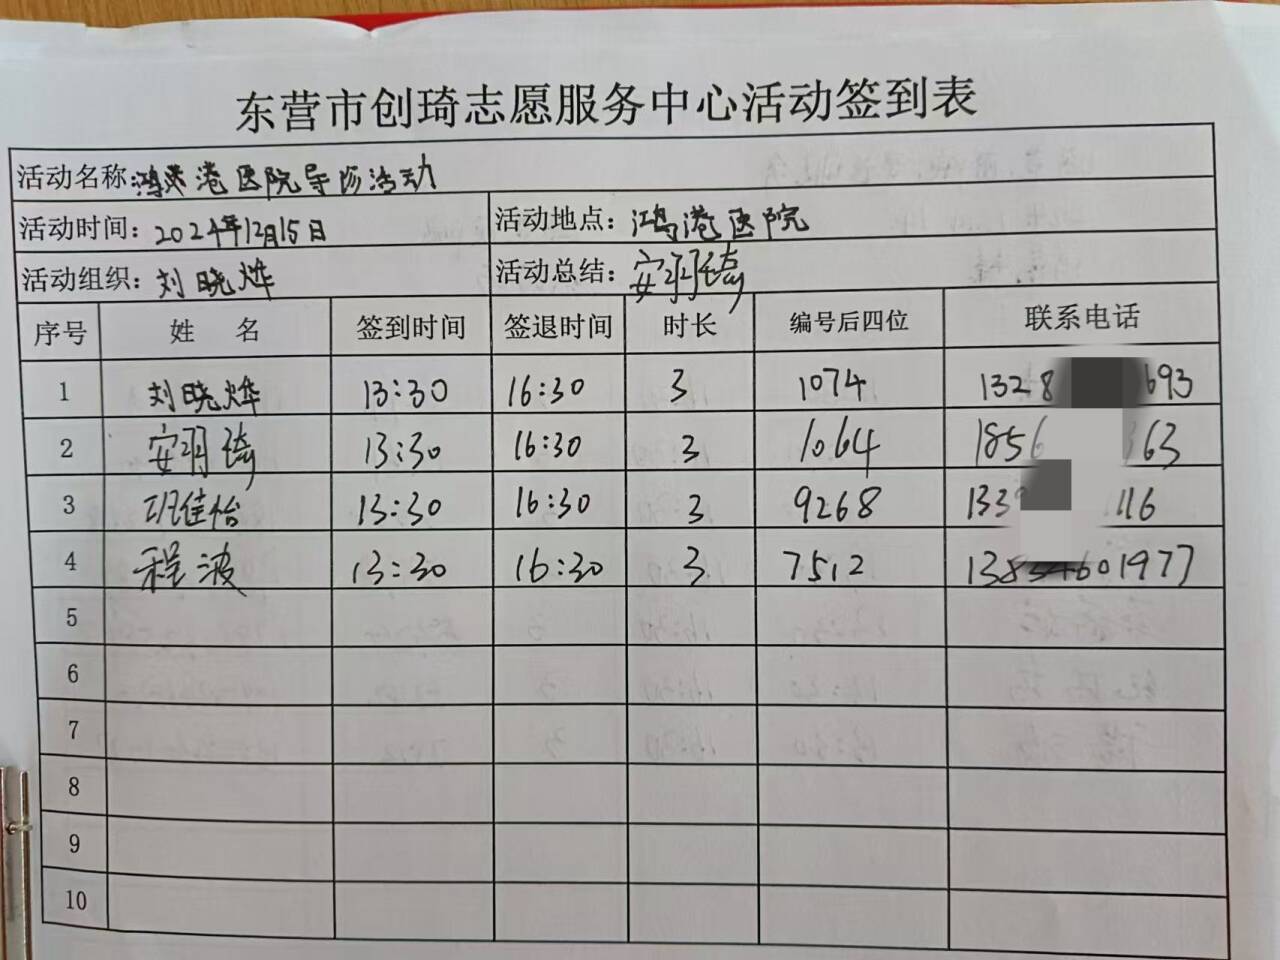 东营市创琦志愿服务中心活动签到表
活动名称:鸿港医院导诊活动
活动时间:2024年12月15日 活动地点:鸿港医院
活动组织:刘晓烨 活动总结:安玥琦
序号 姓 名 签到时间 签退时间 时长 编号后四位 联系电话
1 刘晓烨 13:30 16:30 3 1074 1328 693
2 安玥琦 13:30 16:30 3 1064 1856 363
3 班佳怡 13:30 16:30 3 9268 133 116
4 程波 13:30 16:30 3 7512 138 601977
5
6
7
8
9
10